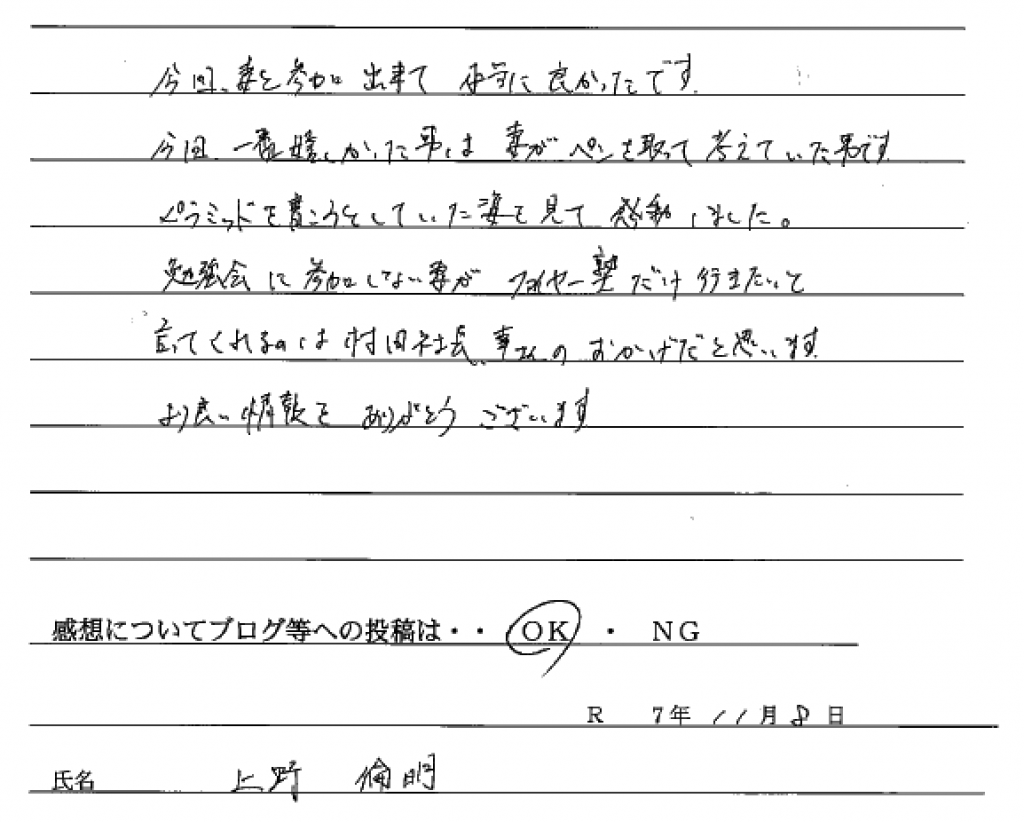 今回、妻と参加出来て 本当に良かったです。
今回 一番嬉しかった事は 妻がペンを取って考えていた事です
ピラミッドを書こうとしていた姿を見て 感動しました。
勉強会に参加しない妻が ファイヤー塾だけ行きたいと
言ってくれるのは村田社長、奥さんのおかげだと思います
より良い情報を ありがとう ございます
感想についてブログ等への投稿は・・ OK ・ NG
R 7年 11月 8日
氏名 上野 倫明